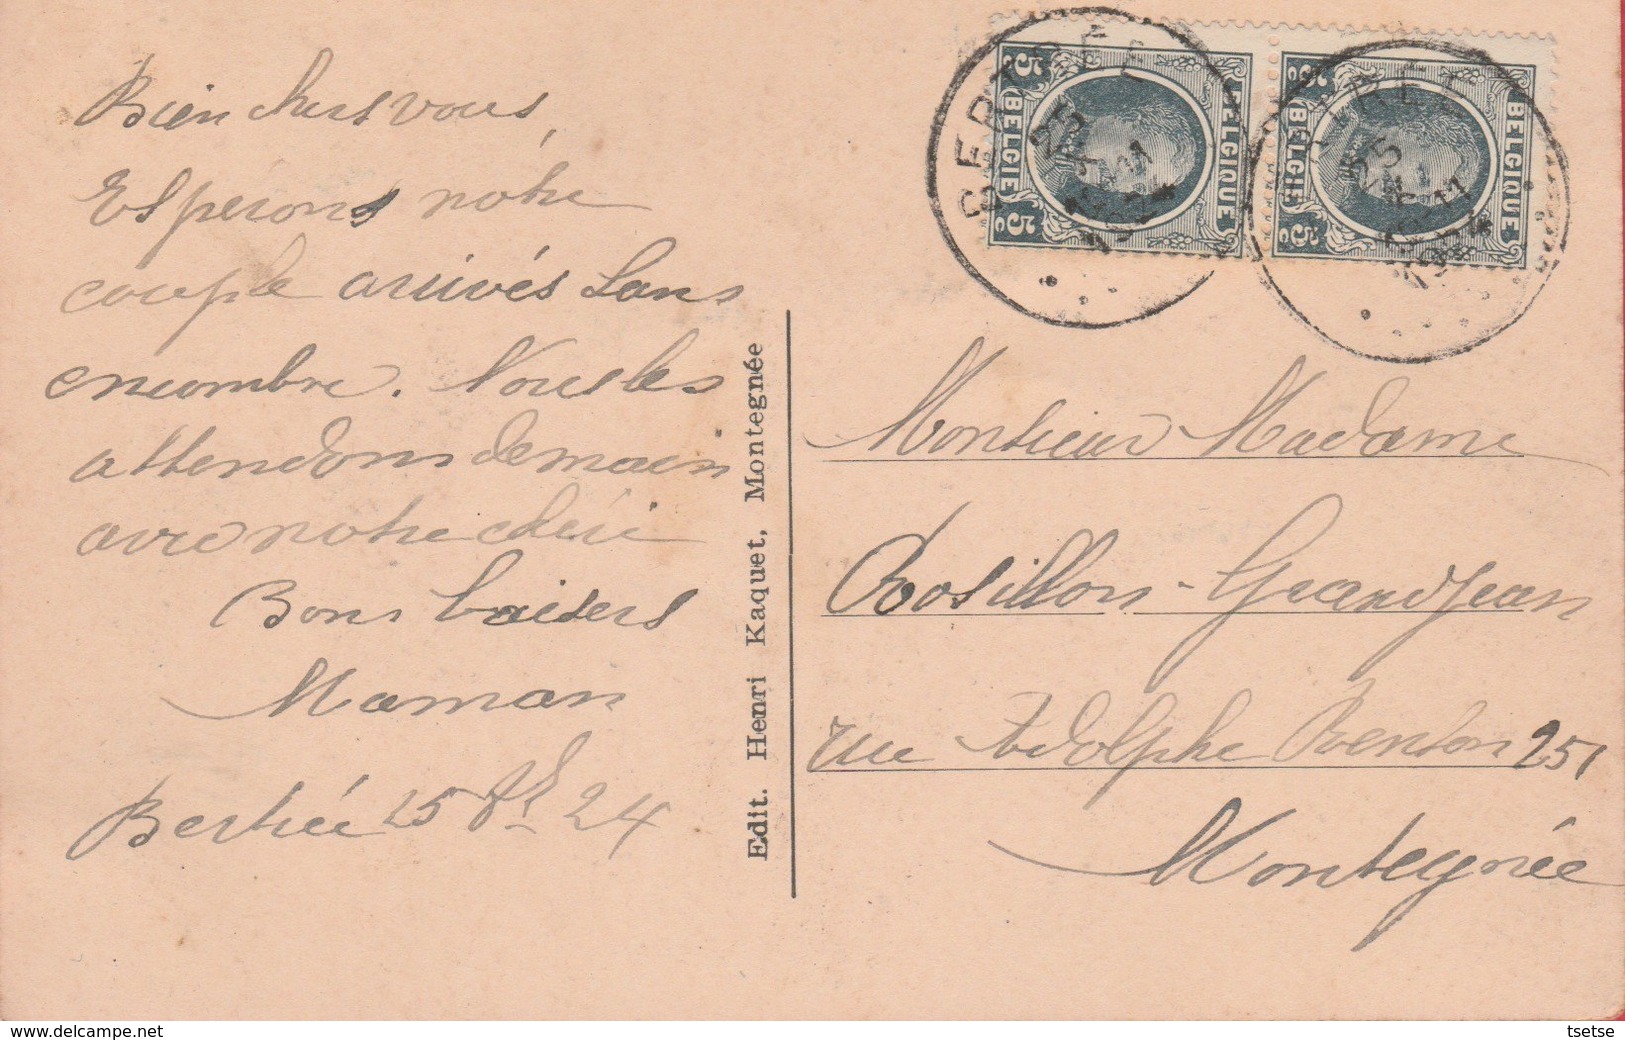 Bien chers vous,
Espérons notre
couple arrivés sans
encombre. Nous les
attendons demain
avec notre chérie
Bons baisers
Maman
Bertrée 25 24
Edit. Henri Kaquet, Montegnée
BERTRÉE
25
11
1924
5c BELGIE 5c
BELGIQUE
BERTRÉE
25
11
1924
5c BELGIË 5c
BELGIQUE
Monsieur Madame
Rosillon-Grandjean
rue Adolphe Renson 251
Montegnée
www.delcampe.net
tsetse